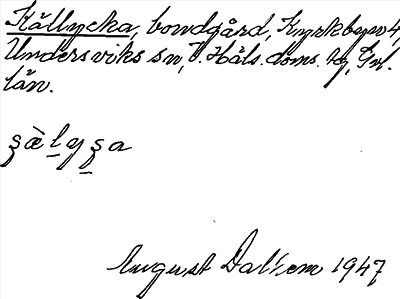 Källycka, bondgård, Kyrkbyn 4,
Undersviks sn, V. Häls. doms. tg, Gvl.
län.
August Dahlem 1947